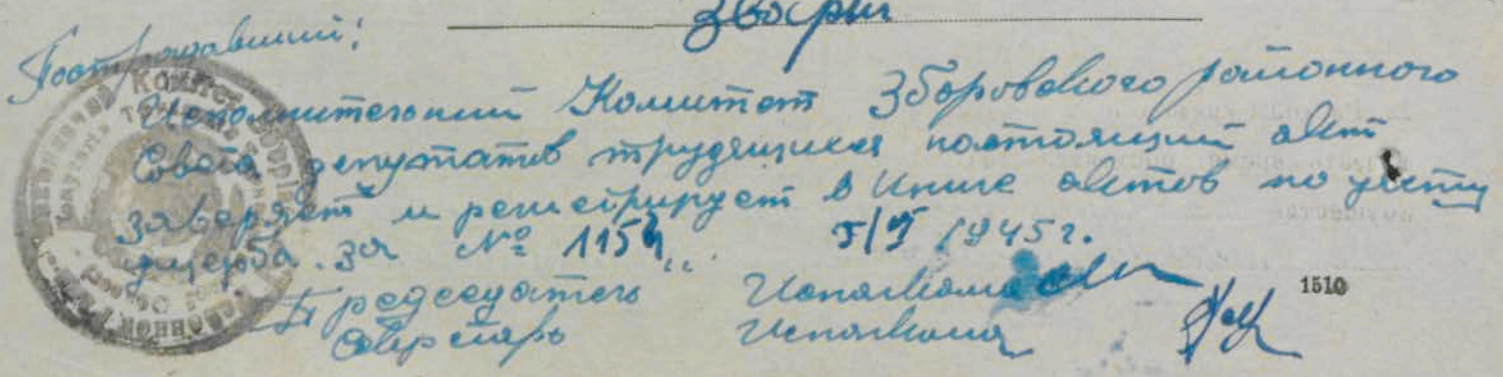 Збори
Пострадавший:
Исполнительний Комитет Зборовского районного
Совета депутатов трудящихся настоящий акт
заверяет и регистрирует в книге актов по учету
ущерба за № 1154 5/V 1945 г.
Председатель Исполкома
Секретарь Исполкома
1510